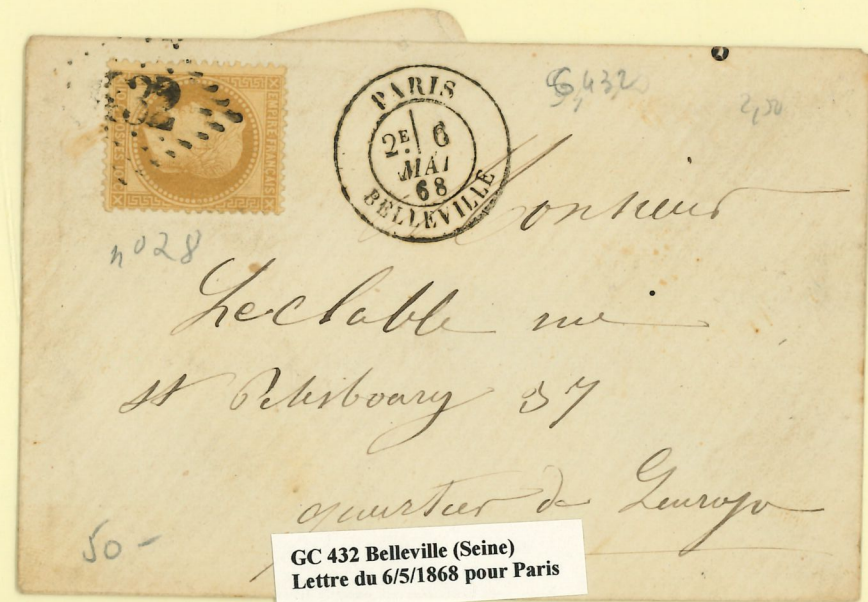 EMPIRE FRANÇAIS
32
PARIS
2E 6
MAI
68
BELLEVILLE
G,432
2,50
n° 28
Monsieur
Leclable rue
St Petersbourg 37
quartier de Leurope
50 -
GC 432 Belleville (Seine)
Lettre du 6/5/1868 pour Paris